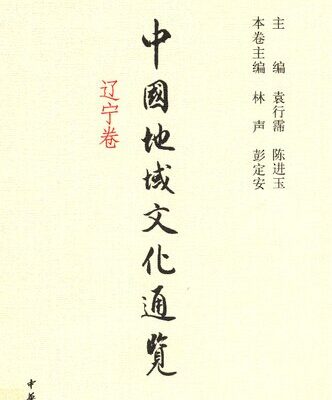 主 编 袁行霈 陈进玉
本卷主编 林 声 彭定安
中國地域文化通覽
辽宁卷
中華